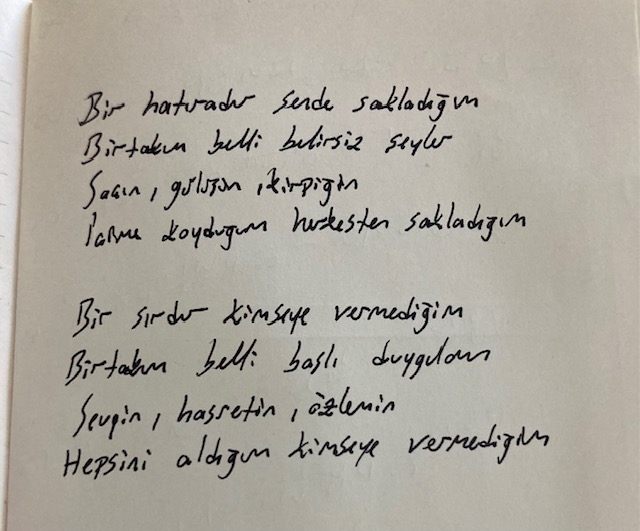 Bir hatıradır sende sakladığım
Birtakım belli belirsiz şeyler
Saçın, gülüşün, kirpiğin
koyduğum herkesten sakladığım
Bir sırdır kimseye vermediğim
Birtakım belli başlı duyguların
Sevgin, hasretin, özlemin
Hepsini aldığım kimseye vermediğim